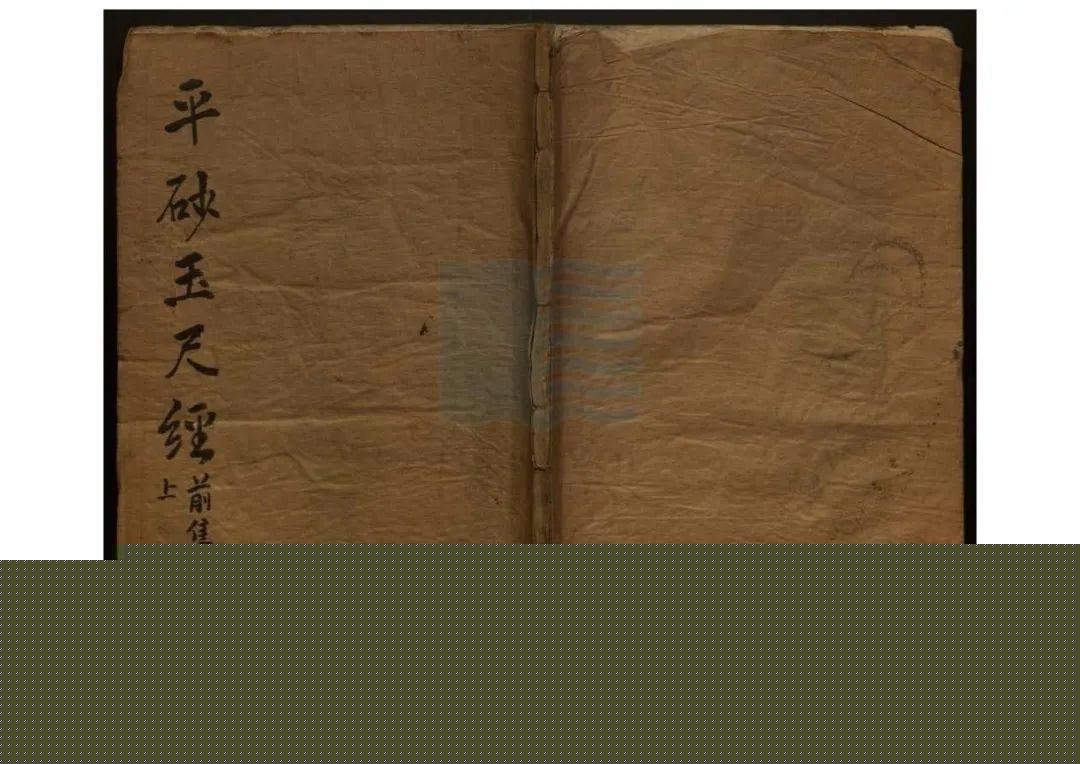 平砂玉尺經
前集
上